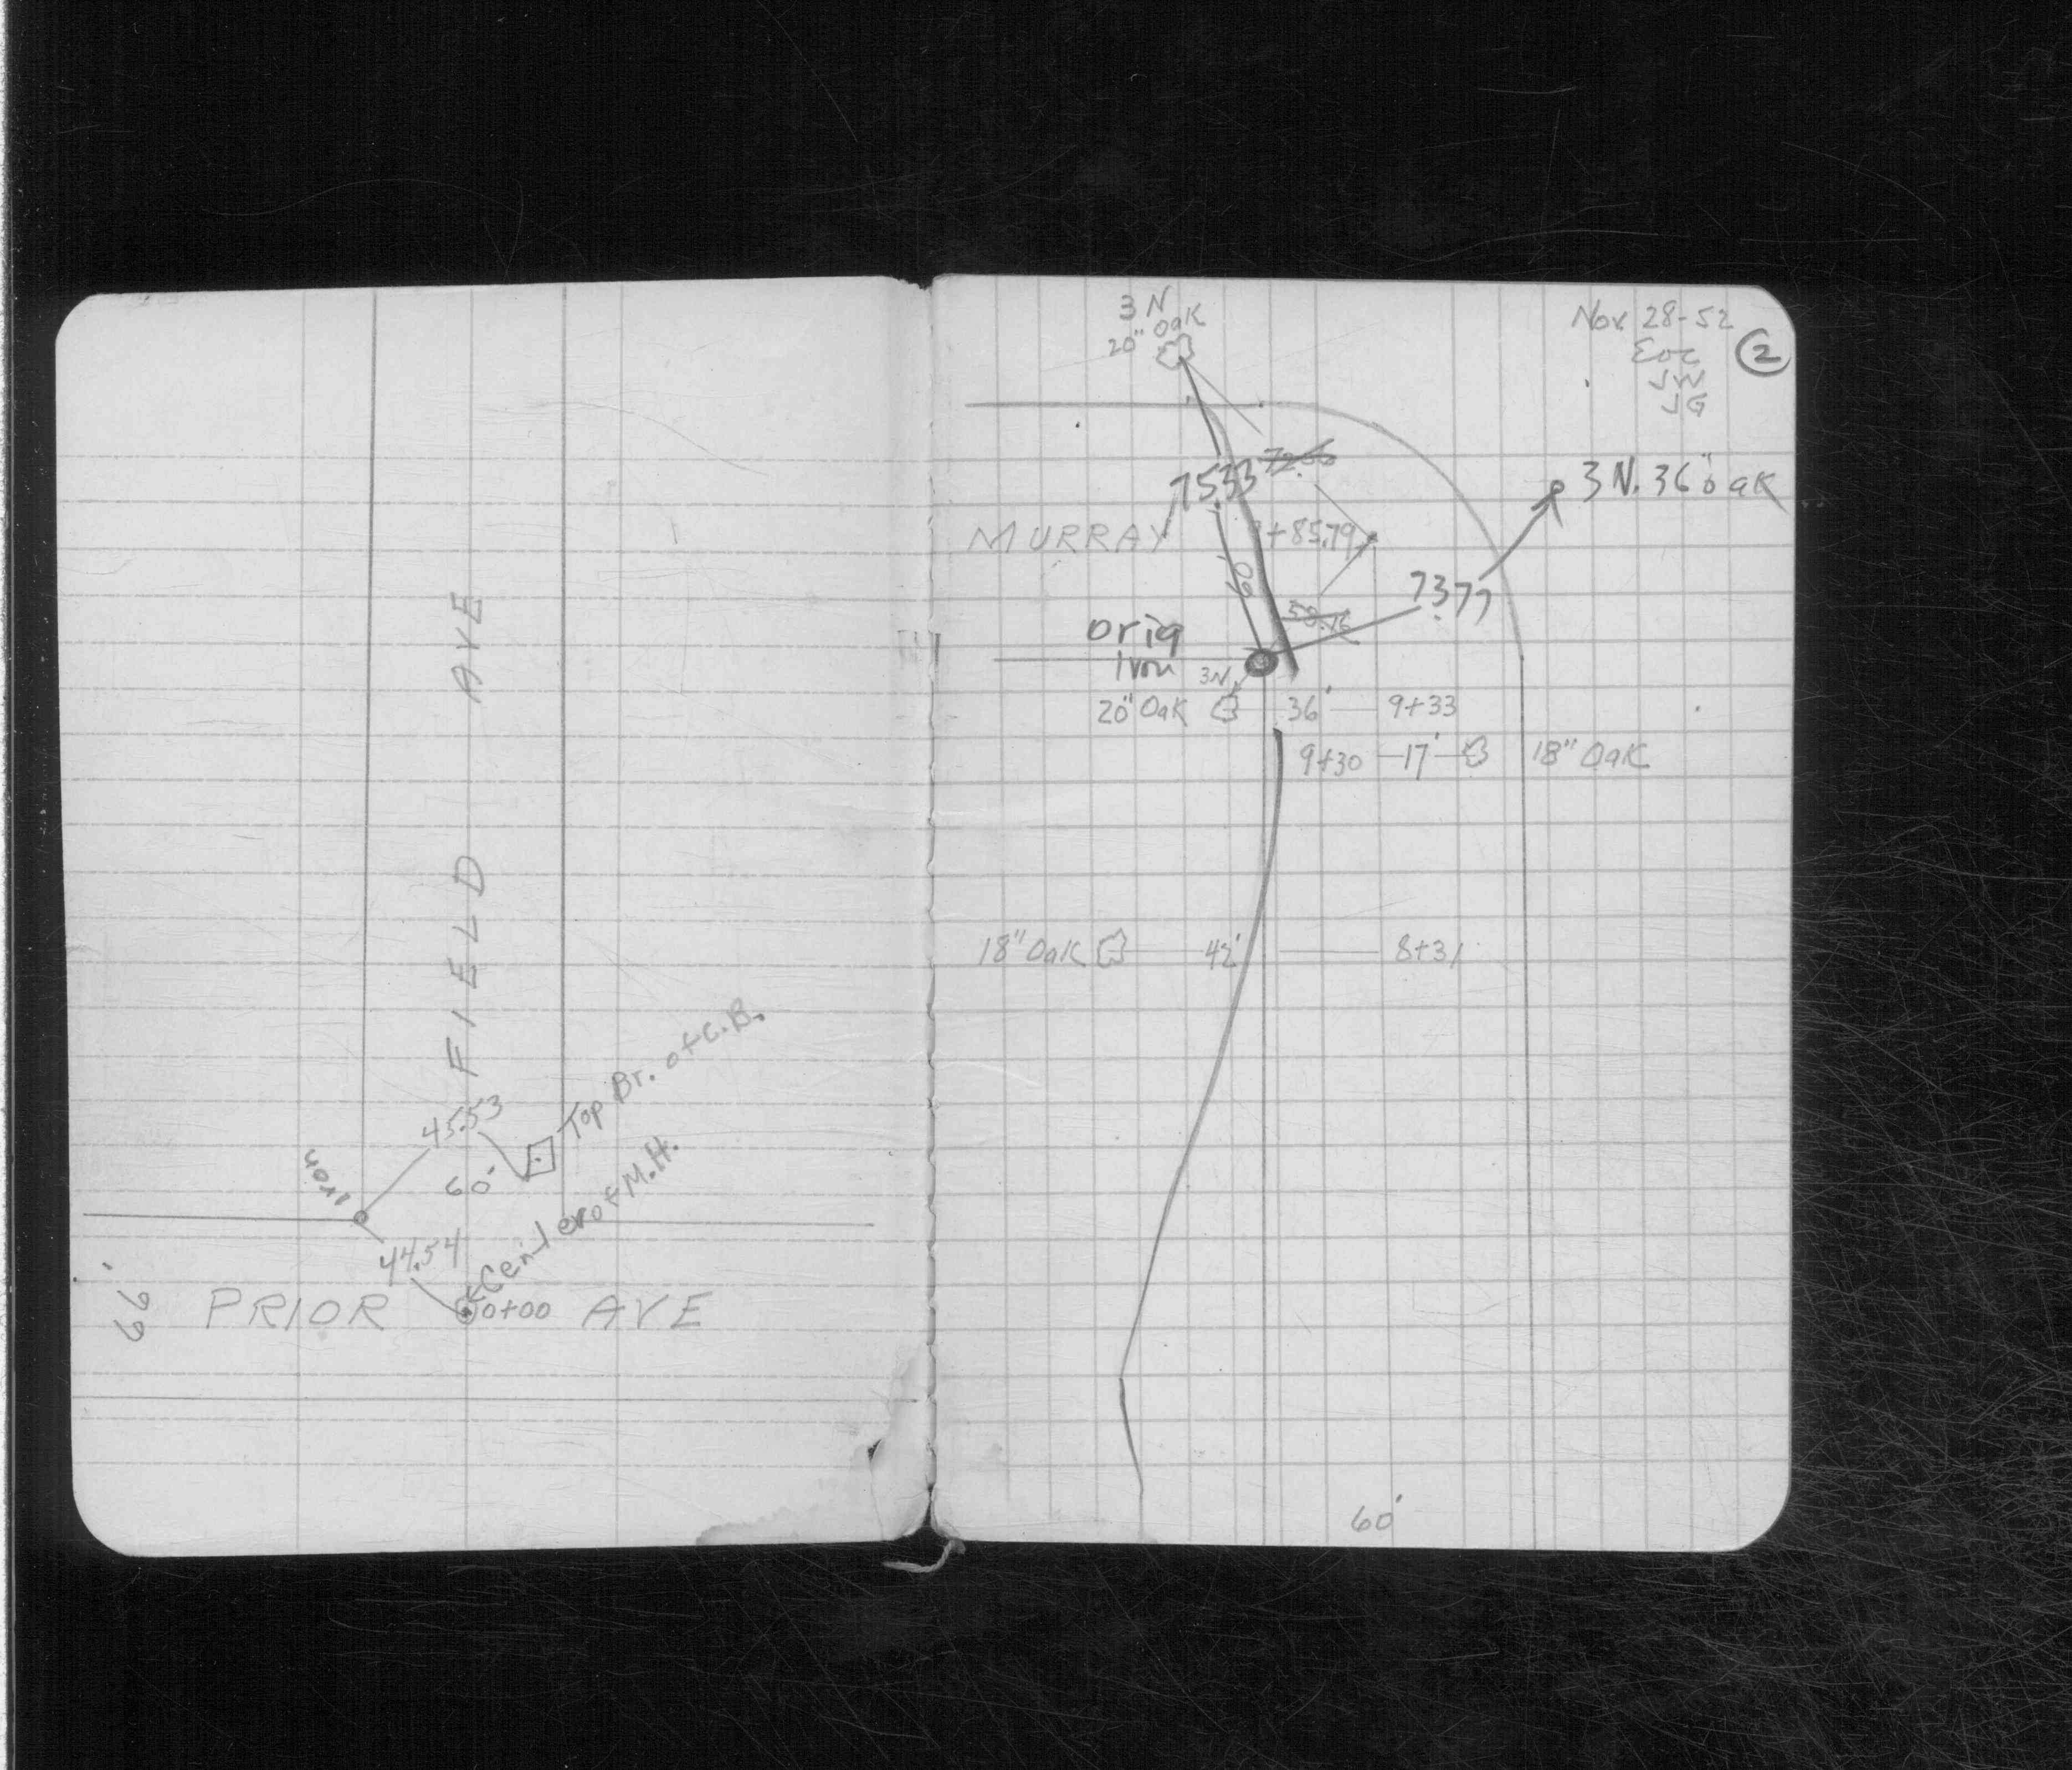 FIELD AVE
45.53
Top Br. of C.B.
60'
Iron
Center of M.H.
44.54
PRIOR
0+00
AVE
3 N
20" Oak
Nov. 28-52
2
JW
JG
7533
3 N. 36" Oak
MURRAY
+85.79
60
7377
Orig
Iron
3N.
20" Oak
36'
9+33
9+30
17'
18" Oak
18" Oak
42'
8+31
60'